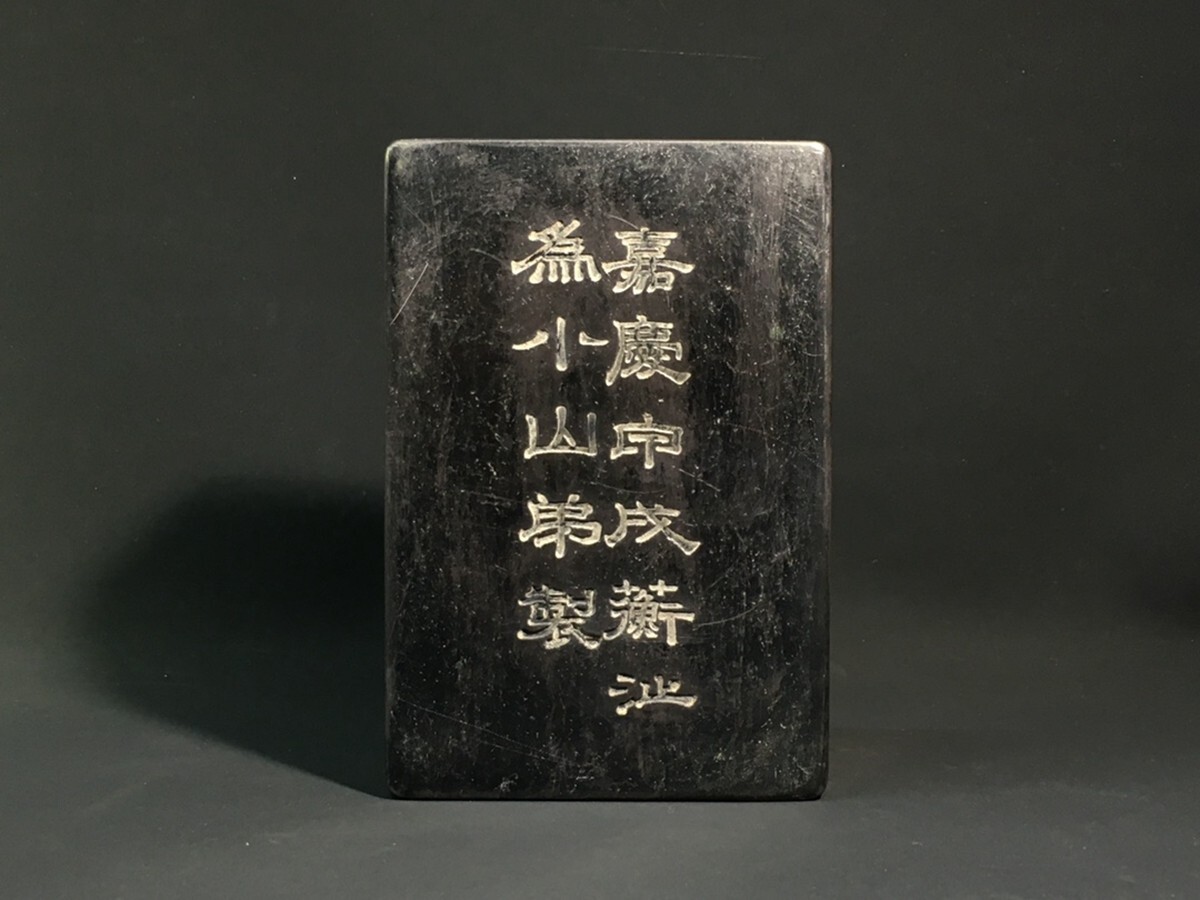 嘉慶甲戌蘅沚
為小山弟製